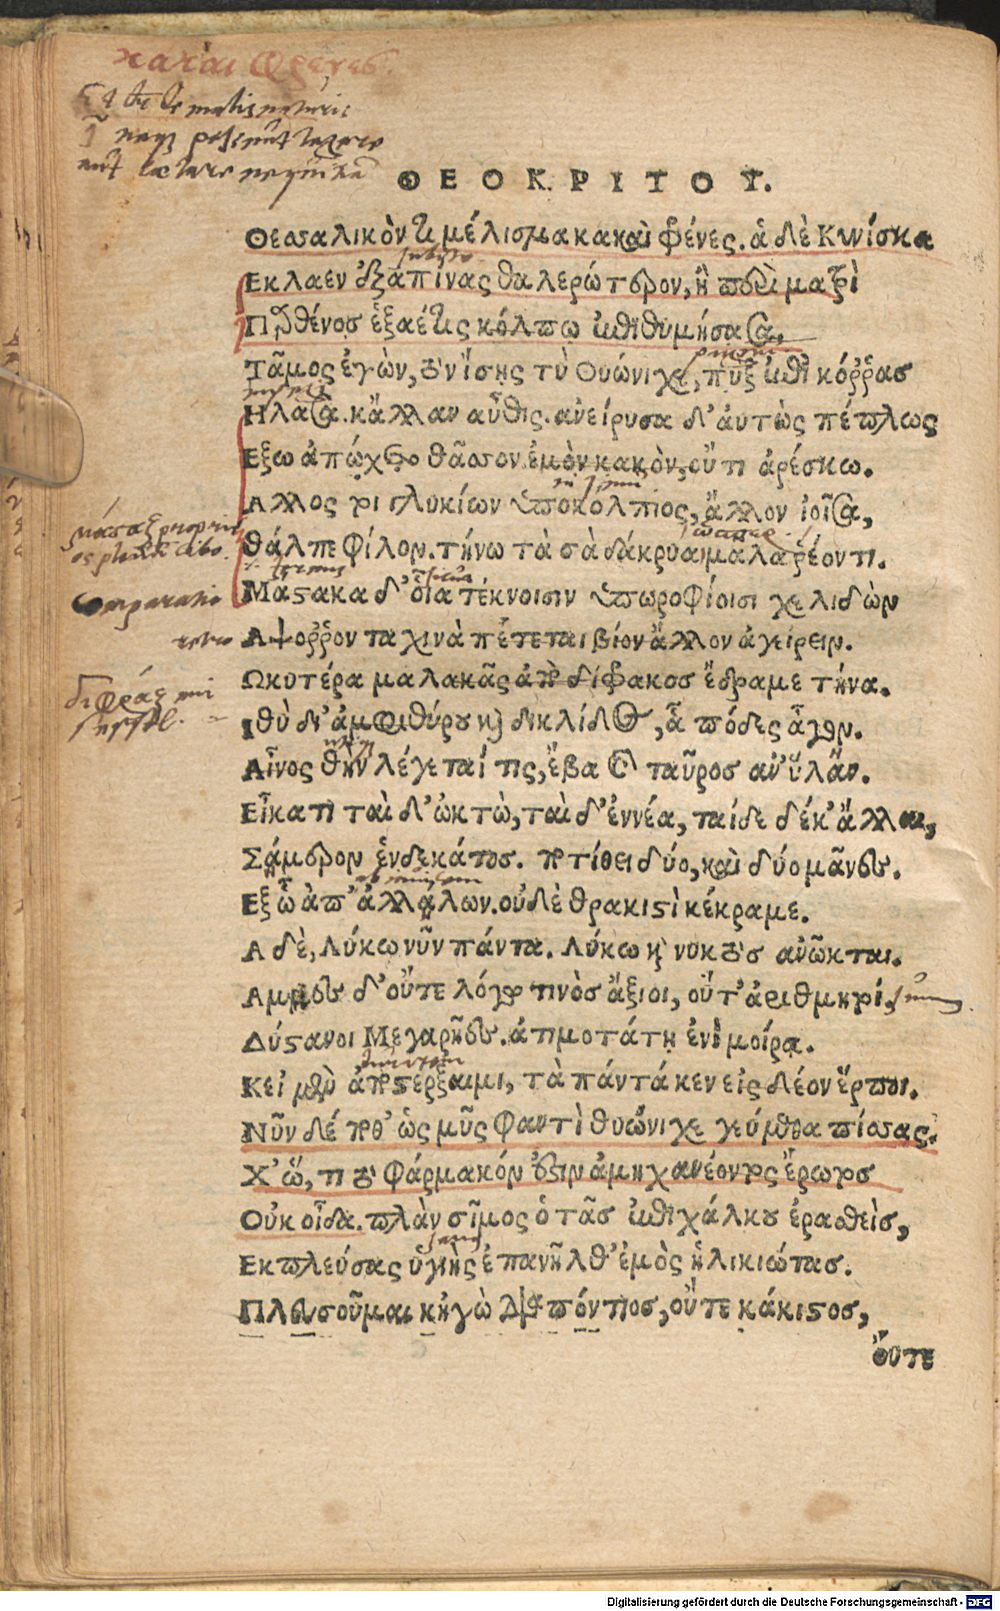 κακαὶ φρένες.
ΘΕΟΚΡΙΤΟΥ.
Θεσσαλικόν τι μέλισμα κακαὶ φρένες. ἁ δὲ Κωίσκα
Εκλαεν ἐξαπίνας θαλερώτερον, ἢ παρὰ ματρὶ
Παρθένος ἑξαέτις κόλπω ἐπιθυμήσασα,
Τᾶμος ἐγὼν, τὸν ἴσης τὺ Θυώνιχε, πὺξ ἐπὶ κόῤῥας
Ηλασα. κἄλλαν αὖθις. ἀνείρυσα δ' αὐτὼς πέπλως
Εξω ἀπώχετο θᾶσσον. ἐμὸν κακὸν, οὔ τι ἀρέσκω.
Αλλος τοι γλυκίων ὑποκόλπιος, ἄλλον ἰοῖσα,
Θάλπε φίλον. τήνω τὰ σὰ δάκρυα μᾶλα ῥέοντι.
Μάστακα δ' οἷα τέκνοισιν ὑπωροφίοισι χελιδὼν
Αψοῤῥον ταχινὰ πέτεται βίον ἄλλον ἀγείρειν.
Ωκυτέρα μαλακᾶς ἀπὸ δίφρακος ἔδραμε τήνα.
Ιθὺ δι' ἀμφιθύρου καὶ δικλίδος, ἇ πόδες ἆγον.
Αἶνος θὴν λέγεταί τις, ἔβα καὶ ταῦρος ἀν' ὕλαν.
Εἴκατι ταὶ δ' ὀκτὼ, ταὶ δ' ἐννέα, ταίδε δέκ' ἄλλαι,
Σάμερον ἑνδεκάτας. ποτίθει δύο, καὶ δύο μᾶνες.
Εξ ὧ ἀπ' ἀλλάλων. οὐδὲ θρακιστὶ κέκραμε.
Α δὲ, Λύκω νῦν πάντα. Λύκω καὶ νυκτὸς ἀνῶκται.
Αμμες δ' οὔτε λόγω τινὸς ἄξιοι, οὔτ' ἀριθμητοί,
Δύστανοι Μεγαρῆες. ἀτιμοτάτῃ ἐνὶ μοίρᾳ.
Κεἰ μὲν ἀποστέρξαιμι, τὰ πάντά κεν εἰς δέον ἕρποι.
Νῦν δέ ποθ' ὡς μῦς φαντὶ θυώνιχε γεύμεθα πίσσας.
Χ'ὥ, τι τὸ φάρμακόν ἐστιν ἀμηχανέοντος ἔρωτος
Οὐκ οἶδα. πλὰν σῖμος ὁ τᾶς ἐπιχάλκου ἐρασθεὶς,
Εκπλεύσας ὑγιὴς ἐπανῆλθ' ἐμὸς ἡλικιώτας.
Πλευσοῦμαι κἠγὼ διαπόντιος, οὔτε κάκιστος,
οὔτε
Comparatio
Digitalisierung gefördert durch die Deutsche Forschungsgemeinschaft - DFG